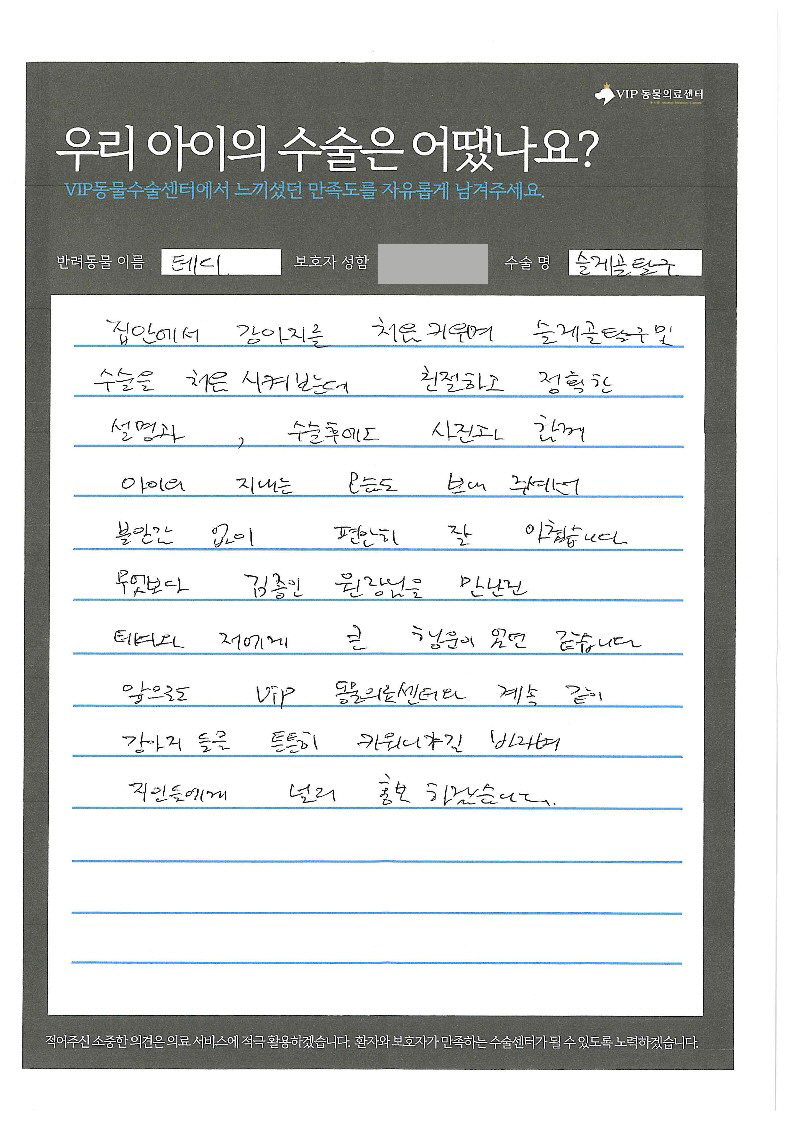 VIP 동물의료센터
우리 아이의 수술은 어땠나요?
VIP동물수술센터에서 느끼셨던 만족도를 자유롭게 남겨주세요.
반려동물 이름 테디 보호자 성함 수술 명 슬게골탈구
집안에서 강아지를 처음 키우며 슬게골탈구 및
수술을 처음 시켜보는데 친절하고 정확한
설명과 , 수술후에도 사진과 함께
아이의 지내는 모습도 보내 주셔서
불안감 없이 편안히 잘
무엇보다 김종인 원장님을 만난건
테디와 저에게 큰 행운이 같습니다
앞으로도 VIP 동물의료센터와 계속 같이
강아지 들을 튼튼히 키워나가길 바라며
지인들에게 널리 홍보 하겠습니다.
적어주신 소중한 의견은 의료 서비스에 적극 활용하겠습니다. 환자와 보호자가 만족하는 수술센터가 될 수 있도록 노력하겠습니다.